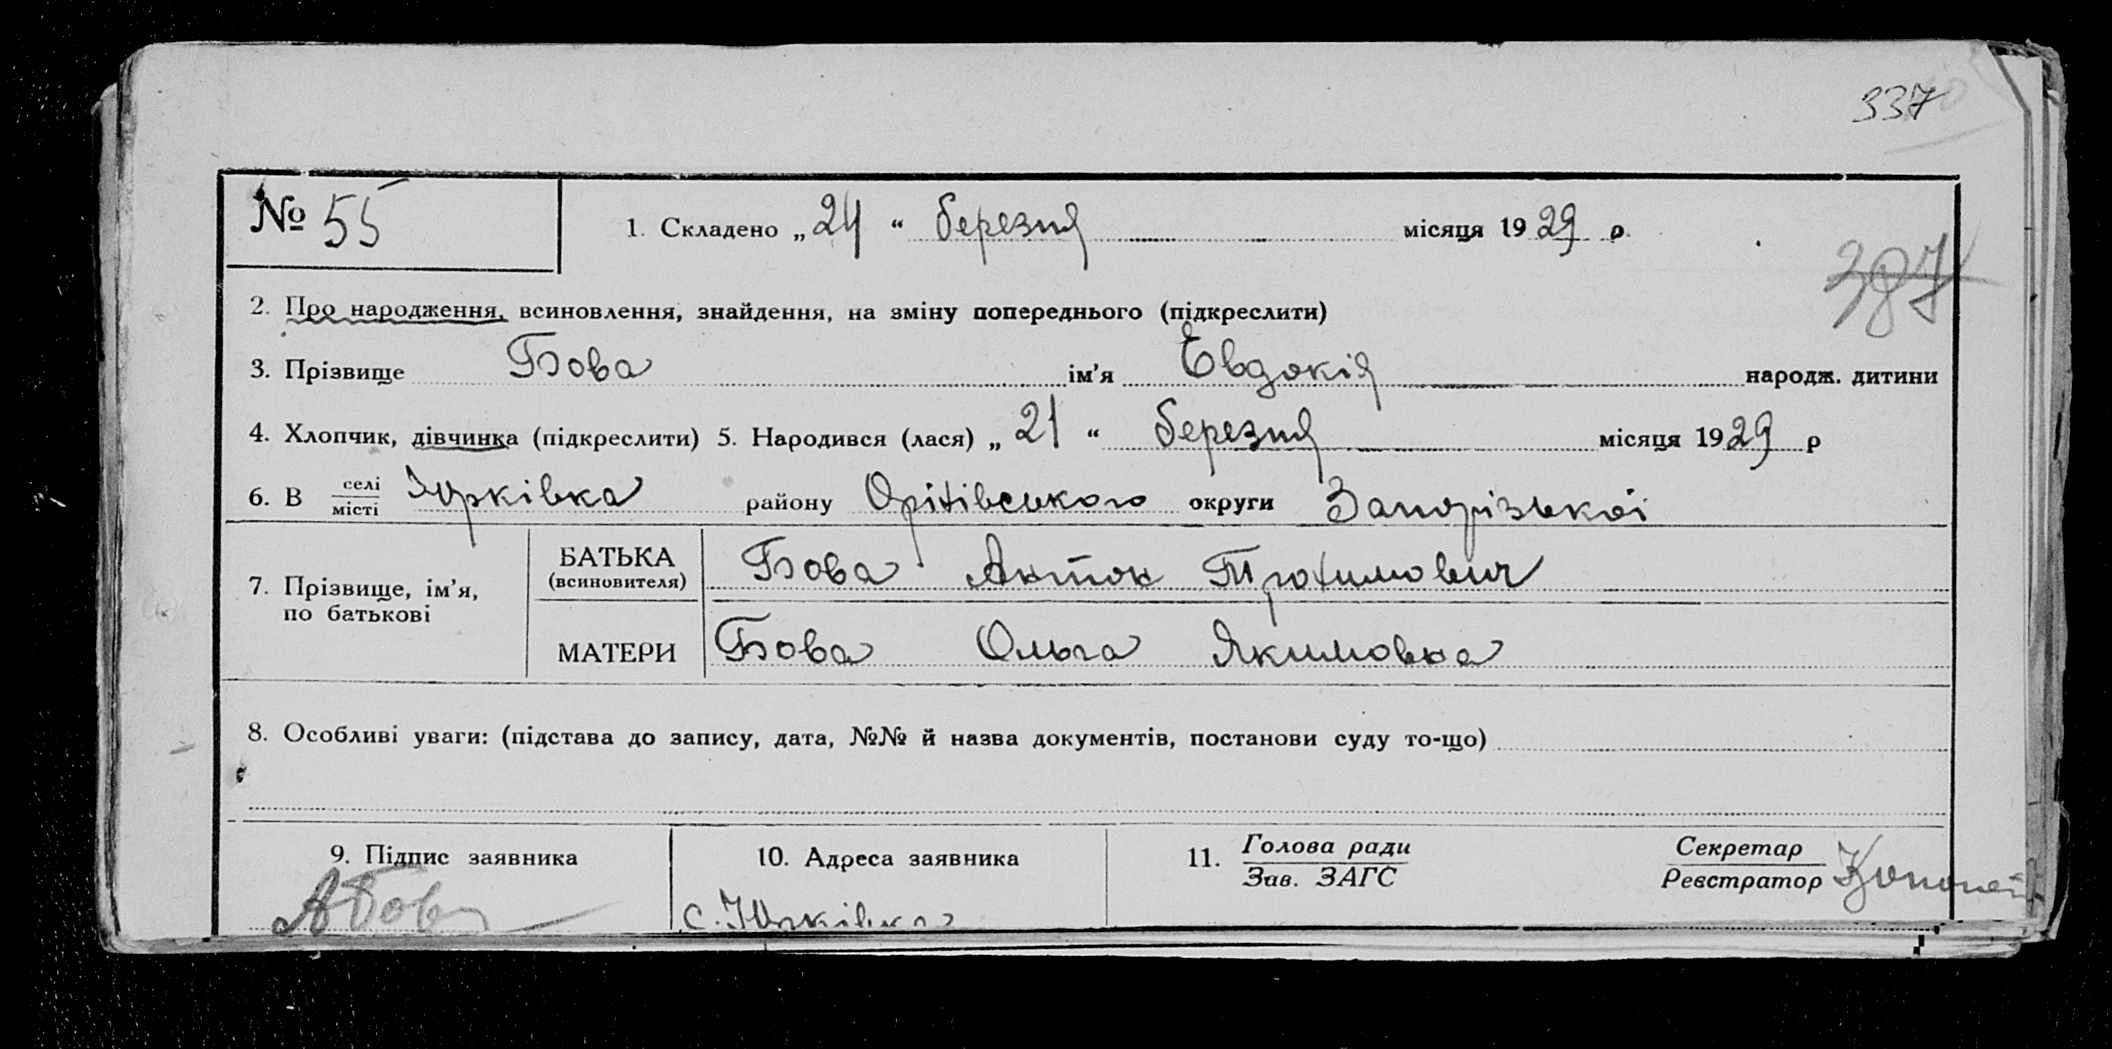 337
№ 55
1. Складено „24“ березня місяця 1929 р.
387
2. Про народження, всиновлення, знайдення, на зміну попереднього (підкреслити)
3. Прізвище Бова ім’я Євдокія народж. дитини
4. Хлопчик, дівчинка (підкреслити) 5. Народився (лася) „21“ березня місяця 1929 р
6. В селі/місті Юрківка району Оріхівського округи Запорізької
7. Прізвище, ім’я, по батькові
БАТЬКА (всиновителя) Бова Антон Трохимович
МАТЕРИ Бова Ольга Якимовна
8. Особливі уваги: (підстава до запису, дата, №№ й назва документів, постанови суду то-що)
9. Підпис заявника
АБова
10. Адреса заявника
с. Юрківка
11. Голова ради / Зав. ЗАГС
Секретар / Реєстратор